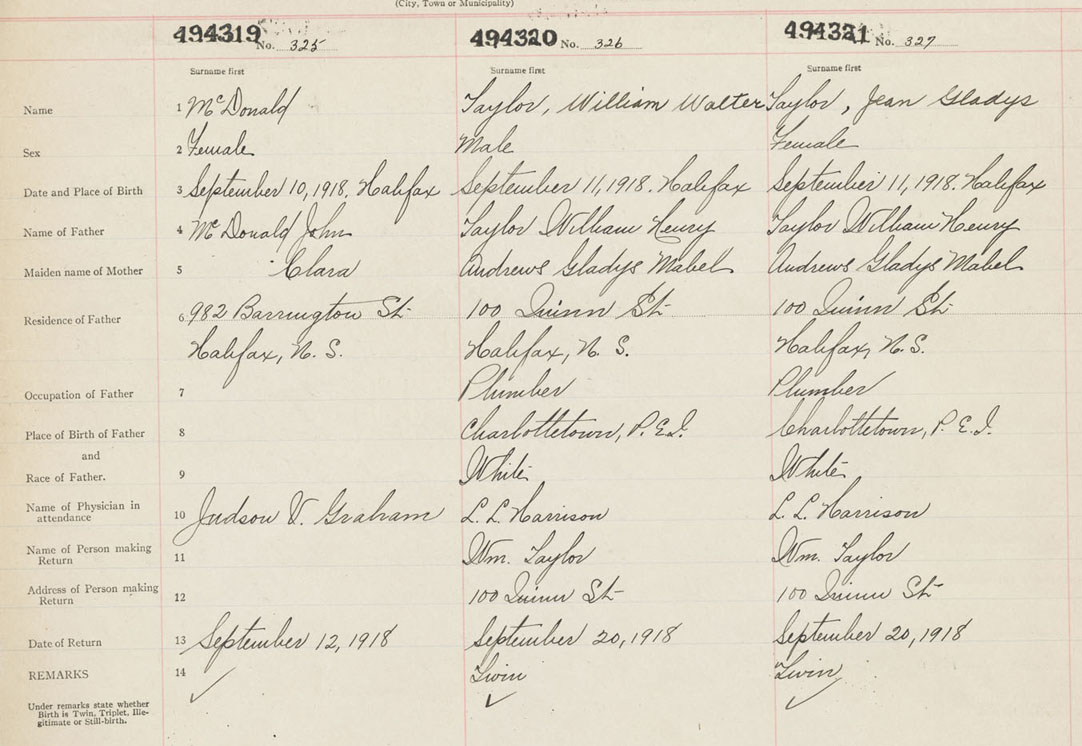 (City, Town or Municipality)
494319 No. 325 494320 No. 326 494321 No. 327
Surname first Surname first Surname first
Name 1 McDonald Taylor, William Walter Taylor, Jean Gladys
Sex 2 Female Male Female
Date and Place of Birth 3 September 10, 1918. Halifax September 11, 1918. Halifax September 11, 1918. Halifax
Name of Father 4 McDonald John Taylor William Henry Taylor William Henry
Maiden name of Mother 5 Clara Andrews Gladys Mabel Andrews Gladys Mabel
Residence of Father 6 982 Barrington St 100 Quinn St 100 Quinn St
Halifax, N. S. Halifax, N. S. Halifax, N. S.
Occupation of Father 7 Plumber Plumber
Place of Birth of Father 8 Charlottetown, P. E. I. Charlottetown, P. E. I.
and
Race of Father. 9 White White
Name of Physician in
attendance 10 Judson V. Graham L. L. Harrison L. L. Harrison
Name of Person making
Return 11 Wm. Taylor Wm. Taylor
Address of Person making
Return 12 100 Quinn St 100 Quinn St
Date of Return 13 September 12, 1918 September 20, 1918 September 20, 1918
REMARKS 14 Twin Twin
Under remarks state whether
Birth is Twin, Triplet, Ille-
gitimate or Still-birth.